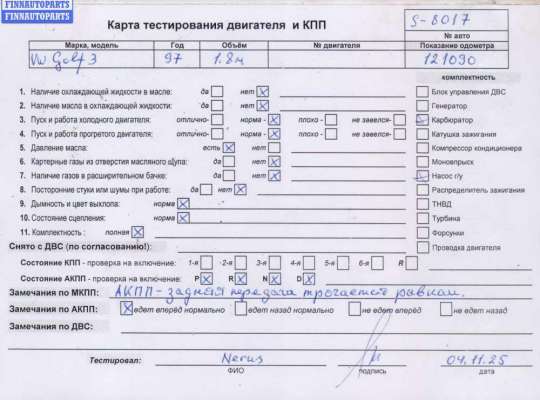 FINNAUTOPARTS
FINNAUTOPARTS
Карта тестирования двигателя и КПП
S-8017
№ авто
Марка, модель Год Объём № двигателя Показание одометра
VW Golf 3 97 1.8м 121090
комплектность
1. Наличие охлаждающей жидкости в масле: да нет X Блок управления ДВС
2. Наличие масла в охлаждающей жидкости: да нет X Генератор
3. Пуск и работа холодного двигателя: отлично- норма - X плохо - не завелся- Карбюратор
4. Пуск и работа прогретого двигателя: отлично- норма - X плохо - не завелся- Катушка зажигания
5. Давление масла: есть X нет Компрессор кондиционера
6. Картерные газы из отверстия масляного щупа: да нет X Моновпрыск
7. Наличие газов в расширительном бачке: да нет X Насос г/у
8. Посторонние стуки или шумы при работе: да нет X Распределитель зажигания
9. Дымность и цвет выхлопа: норма X ТНВД
10. Состояние сцепления: норма X Турбина
11. Комплектность : полная X Форсунки
Снято с ДВС (по согласованию!): Проводка двигателя
Состояние КПП - проверка на включение: 1-я 2-я 3-я 4-я 5-я 6-я R
Состояние АКПП - проверка на включение: P X R X N X D X
Замечания по МКПП: АКПП - задняя передача трогается рывком.
Замечания по АКПП: X едет вперёд нормально едет назад нормально не едет вперёд не едет назад
Замечания по ДВС:
Тестировал: Nerus 04.11.25
ФИО подпись дата